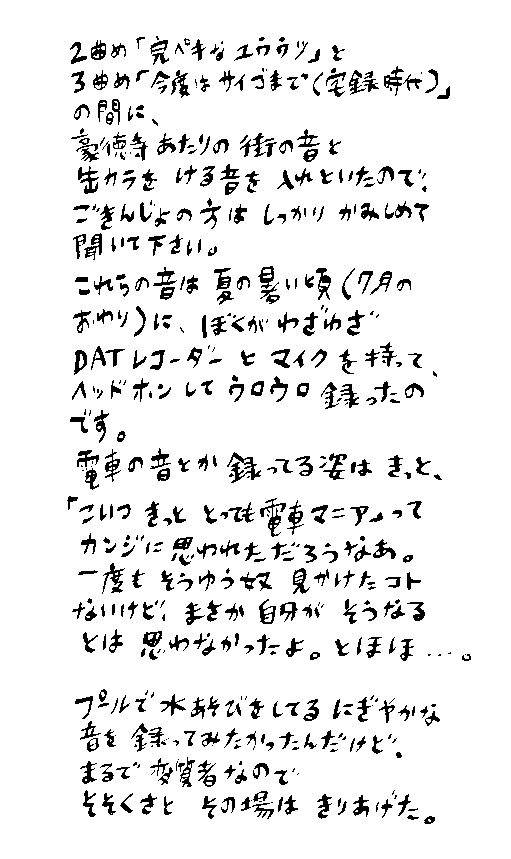 2曲め「完ペキなユウウツ」と
3曲め「今度はサイゴまで(宅録時代)」
の間に、
豪徳寺あたりの街の音と
缶カラをける音を入れといたので、
ごきんじょの方はしっかりかみしめて
聞いて下さい。
これらの音は夏の暑い頃(7月の
おわり)に、ぼくがわざわざ
DATレコーダーとマイクを持って、
ヘッドホンしてウロウロ録ったの
です。
電車の音とか録ってる姿はきっと、
「こいつきっととっても電車マニア」って
カンジに思われただろうなあ。
一度もそうゆう奴見かけたコト
ないけど、まさか自分がそうなる
とは思わなかったよ。とほほ…。
プールで水あそびをしてるにぎやかな
音を録ってみたかったんだけど、
まるで変質者なので
そそくさとその場はきりあげた。